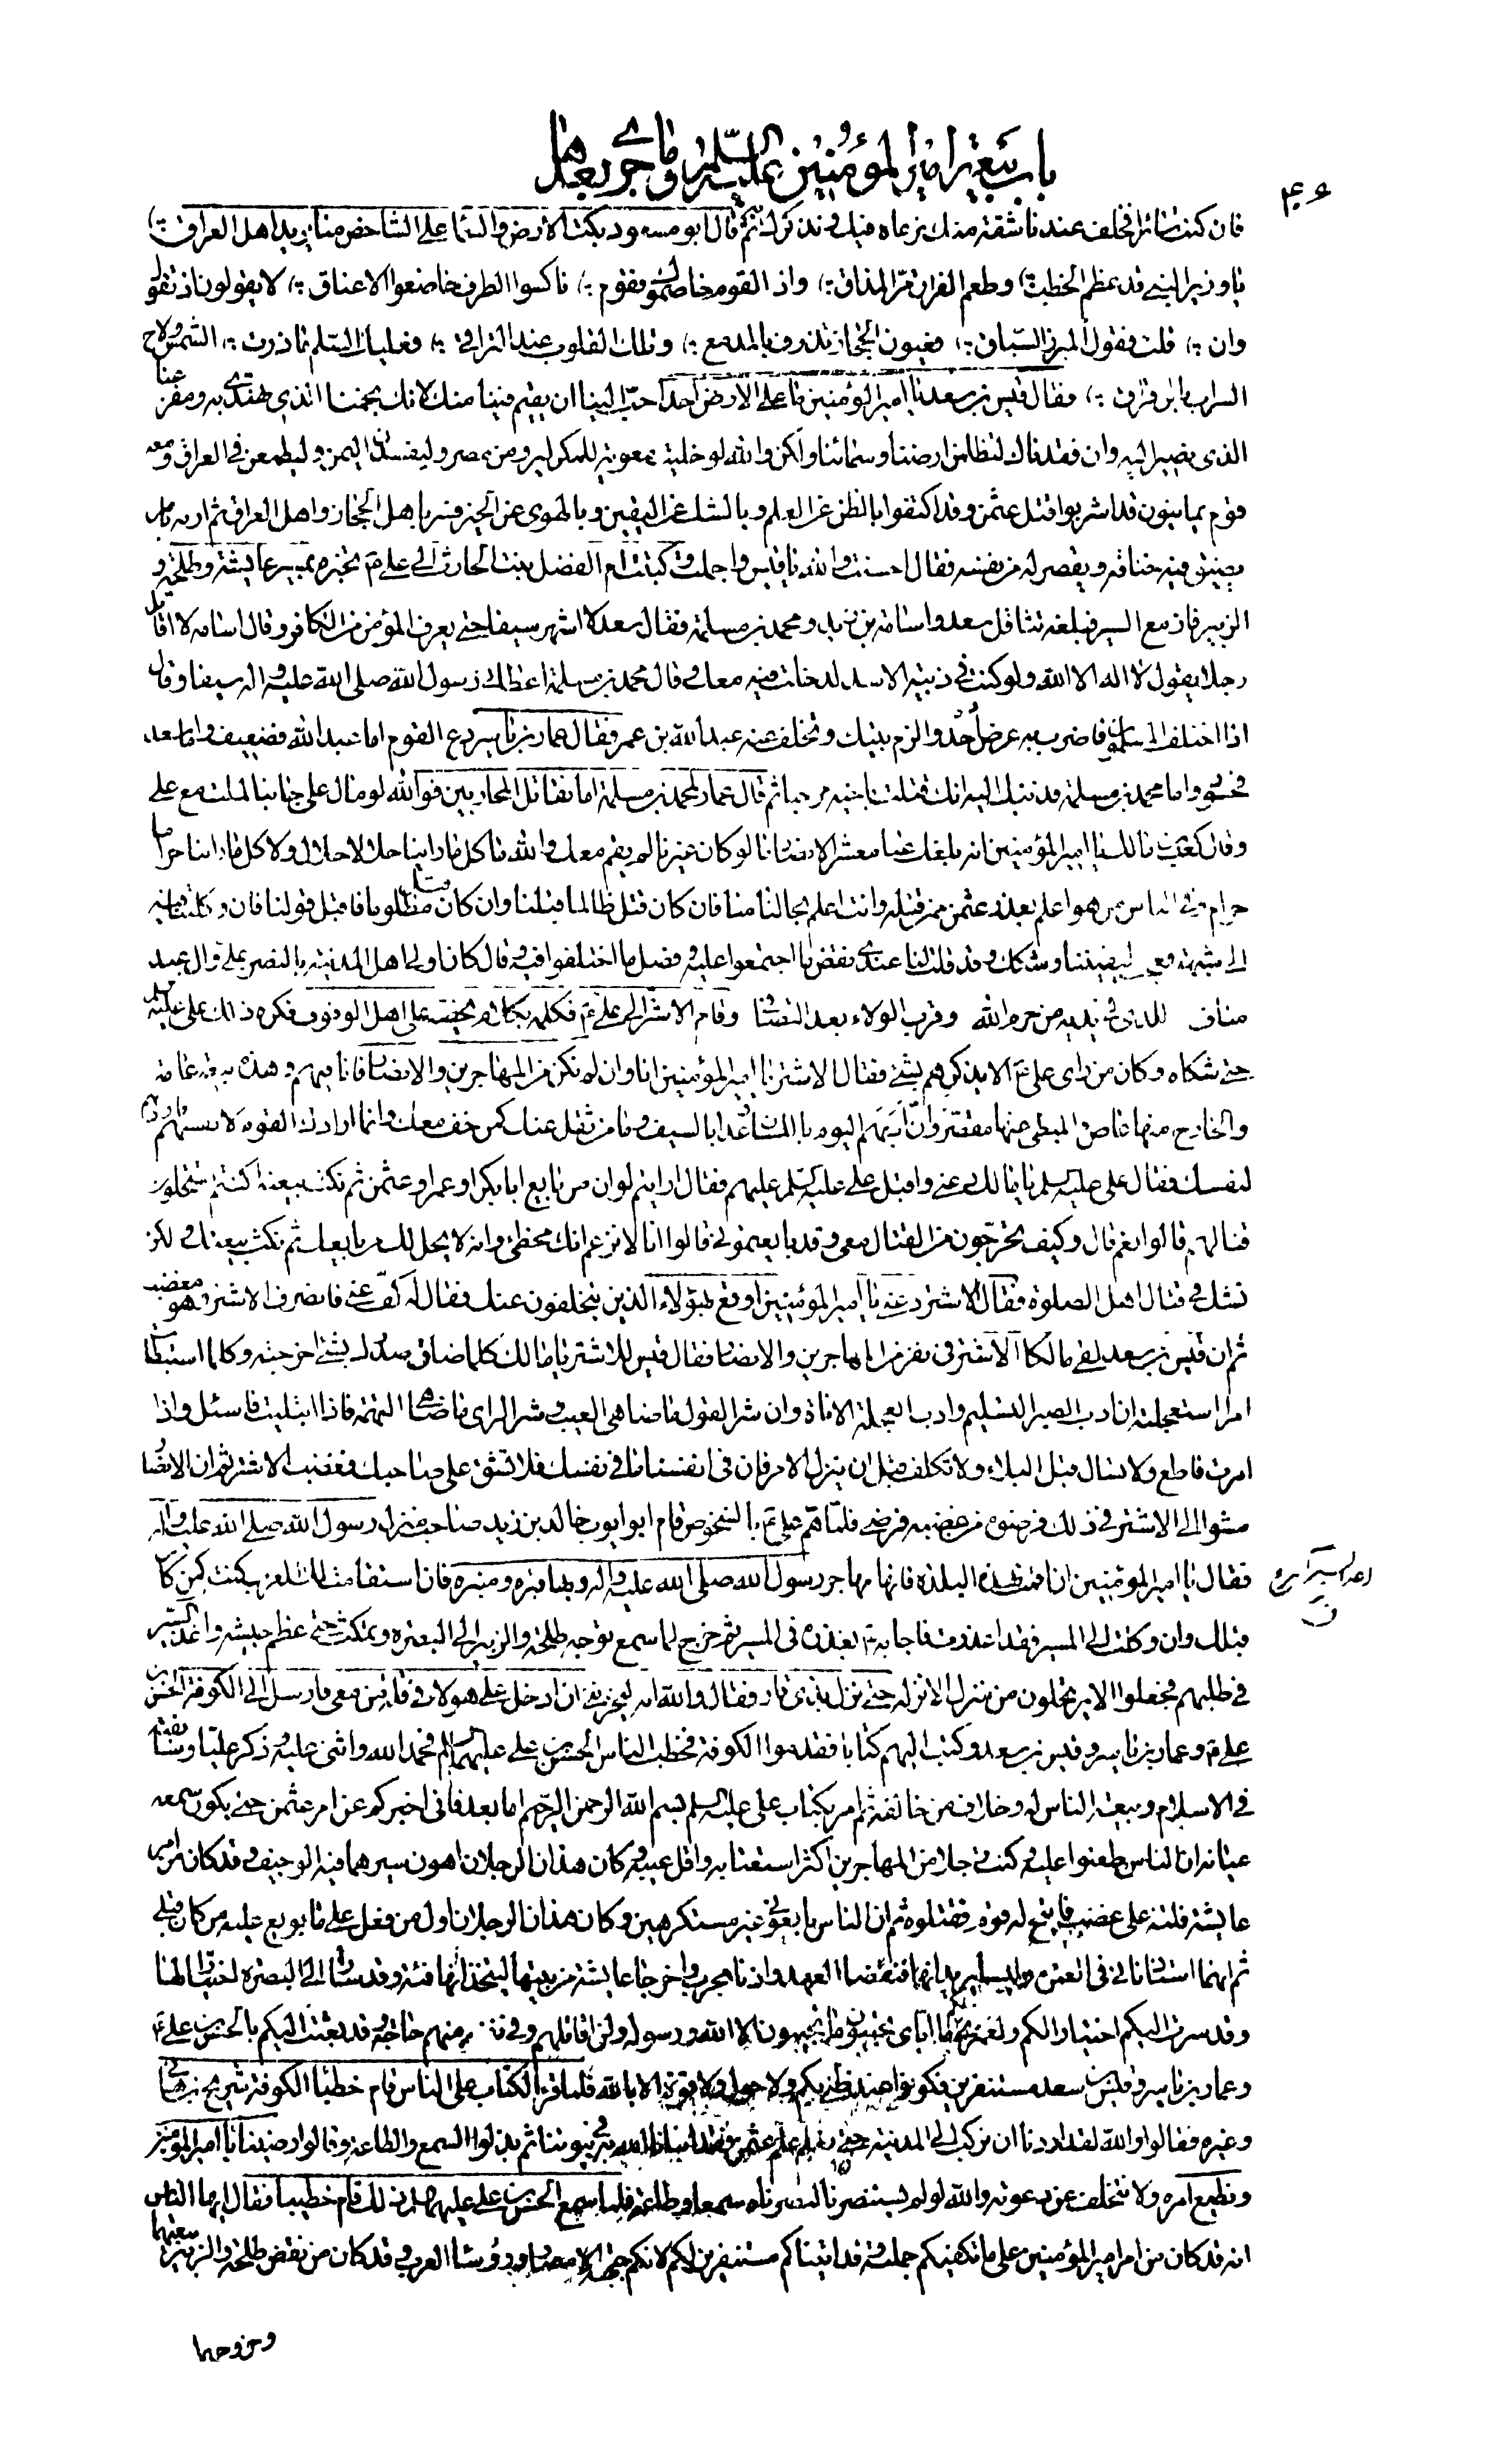 باب بيعة امير المؤمنين عليه السلم وما جرى بعدها
فان كنت سائرا فخلف عندنا شقة منك نرعاه فيك ونذكرك ثم قال ابو مسعود بكت الارض والسماء على الشاخص منا يريد اهل العراق
يا وزير النبي قد عظم الخطب وطعم الفراق مر المذاق واذ القوم خاصموك فقوم ناكسوا الطرف خاضعوا الاعناق لا يقولون اذ تقول
وان قلت فقول المبرز السباق فعيون الحجاز تذرف بالدمع وتلك القلوب عند التراقي فعليك السلم ما ذرت الشمس ولاح
السراب بالرقراق فقال قيس بن سعد يا امير المؤمنين ما على الارض احد احب الينا ان يقيم فينا منك لانك نجمنا الذي نهتدي به ومفزعنا
الذي نصير اليه وان فقدناك لتظلمن ارضنا وسمائنا ولكن والله لو خليت معوية للمكر ليرومن مصر وليفسدن اليمن وليطمعن في العراق ومعه
قوم يمانيون قد اشربوا قتل عثمن وقد اكتفوا بالظن عن العلم وبالشك عن اليقين وبالهوى عن الخير فسر باهل الحجاز واهل العراق ثم ارمه بامر
يضيق فيه خناقه ويقصر له من نفسه فقال احسنت والله يا قيس واجملت وكتبت ام الفضل بنت الحارث الى علي ع تخبره بمسير عايشة وطلحة و
الزبير فازمع السير فبلغه تثاقل سعد واسامة بن زيد ومحمد بن مسلمة فقال سعد لا اشهر سيفا حتى يعرف المؤمن من الكافر وقال اسامه لا اقاتل
رجلا يقول لا اله الا الله ولو كنت في زبية الاسد لدخلت فيه معك وقال محمد بن مسلمة اعطاني رسول الله صلى الله عليه واله سيفا وقال
اذا اختلف المسلمون فاضرب به عرض احد والزم بيتك وتخلف عنه عبد الله بن عمر فقال عمار بن ياسر دع القوم اما عبد الله فضعيف واما سعد
فحسود واما محمد بن مسلمة فذنبك اليه انك قتلت باخيه مرحبا ثم قال عمار لمحمد بن مسلمة اما تقاتل المحاربين فوالله لو مال علي جانبا لملت مع علي
وقال كعب بن مالك يا امير المؤمنين انه بلغك عنا معشر الانصار ما لو كان غيرنا لم يقم معك والله ما كل ما راينا حلالا حلال ولا كل ما راينا حراما
حرام وفي الناس من هو اعلم بعذر عثمن ممن قتله وانت اعلم بحالنا منا فان كان قتل ظالما قبلنا وان كان قتل مظلوما فاقبل قولنا فان وكلتنا فيه
الى شبهة فعجب ليقيننا وشكك وقد قلت لنا عندي نقض ما اجتمعوا عليه وفصل ما اختلفوا فيه وقال كان اولى اهل المدينه بالنصر علي وال عبد
مناف للذي في يديه من حرم الله وقرب الولاء بعد التصافي وقام الاشتر الى علي ع فكلمه بكلام يحضه على اهل الوقوف فكره ذلك علي عليه السلم
حتى شكاه وكان من راى علي ع الا يذكرهم بشئ فقال الاشتر يا امير المؤمنين انا وان لم نكن من المهاجرين والانصار فانا فيهم وهذه بيعة عامة
والخارج منها عاص والمبطئ عنها مقصر وان ادبهم اليوم باللسان وغدا بالسيف وما من ثقل عنك كمن خف معك وانما ارادك القوم لانفسهم فاردهم
لنفسك فقال علي عليه السلم يا مالك دعني واقبل علي عليه السلم عليهم فقال ارايتم لو ان من بايع ابا بكر او عمر او عثمن ثم نكث بيعته اكنتم تستحلون
قتالهم قالوا نعم قال وكيف تحرجون من القتال معي وقد بايعتموني قالوا انا لا نزعم انك مخطئ وانه لا يحل لك من بايعك ثم نكث بيعتك ولكن
نشك في قتال اهل الصلوة فقال الاشتر دعني يا امير المؤمنين اوقع بهؤلاء الذين يتخلفون عنك فقال له كف عني فانصرف الاشتر وهو مغضب
ثم ان قيس بن سعد لقي مالكا الاشتر في نفر من المهاجرين والانصار فقال قيس للاشتر يا مالك كلما ضاق صدرك بشئ اخرجته وكلما استبطات
امرا استعجلته ان ادب الصبر التسليم وادب العجلة الاناة وان شر القول ما ضاهى العيب وشر الراى ما ضاهى التهمة فاذا ابتليت فاسئل واذا
امرت فاطع ولا تسال قبل البلاء ولا تكلف قبل ان ينزل الامر فان في انفسنا ما في نفسك فلا تشق على صاحبك فغضب الاشتر ثم ان الانصار
مشوا الى الاشتر في ذلك فرضوه من غضبه فرضي فلما هم علي ع بالشخوص قام ابو ايوب خالد بن زيد صاحب منزل رسول الله صلى الله عليه واله
فقال يا امير المؤمنين ان اقمت بهذه البلدة فانها مهاجر رسول الله صلى الله عليه واله وبها قبره ومنبره فان استقامت لك العرب كنت كمن كان
قبلك وان وكلت الى المسير فقد اعذرت فاجابه ع بعذره في المسير ثم خرج لما سمع توجه طلحة والزبير الى البصرة وتمكث حتى عظم جيشه واغذ السير
في طلبهم فجعلوا لا يرتحلون من منزل الا نزله حتى نزل بذي قار فقال والله انه ليحزنني ان ادخل على هؤلاء في قلة من معي فارسل الى الكوفة الحسن بن
علي ع وعمار بن ياسر وقيس بن سعد وكتب اليهم كتابا فقدموا الكوفة فخطب الناس الحسن بن علي عليهما السلم فحمد الله واثنى عليه وذكر عليا وسابقته
في الاسلام وبيعة الناس له وخلاف من خالفه ثم امر بكتاب علي عليه السلم بسم الله الرحمن الرحيم اما بعد فاني اخبركم عن امر عثمن حتى يكون سمعه
عيانه ان الناس طعنوا عليه وكنت رجلا من المهاجرين اكثر استعتابه واقل عيبه وكان هذان الرجلان اهون سيرهما فيه الوجيف وقد كان من امر
عايشة فلتة على غضب فاتيح له قوم فقتلوه ثم ان الناس بايعوني غير مستكرهين وكان هذان الرجلان اول من فعل على ما بويع عليه من كان قبلي
ثم انهما استاذناني في العمرة وليسا يريدانها فنقضا العهد واذنا بحرب واخرجا عايشة من بيتها ليتخذانها فئة وقد سارا الى البصرة اختيارا لها
وقد سرت اليكم اختيارا لكم ولعمري ما اياي تجيبون ما تجيبون الا الله ورسوله ولن اقاتلهم وفي نفسي منهم حاجة وقد بعثت اليكم بالحسن بن علي ع
وعمار بن ياسر وقيس بن سعد مستنفرين فكونوا عند ظني بكم ولا حول ولا قوة الا بالله فلما قرئ الكتاب على الناس قام خطباء الكوفة شريح بن هاني
وغيره فقالوا والله لقد اردنا ان نركب الى المدينة حتى نعلم علم عثمن فقد انبانا الله به في بيوتنا ثم بذلوا السمع والطاعة وقالوا رضينا يا امير المؤمنين
ونطيع امره ولا نتخلف عن دعوته والله لو لم يستنصرنا لنصرناه سمعا وطاعة فلما سمع الحسن بن علي عليهما السلم ذلك قام خطيبا فقال ايها الناس
انه قد كان من امر امير المؤمنين علي ما تكفيكم جملته وقد اتيناكم مستنفرين لكم لانكم جبهة الامصار ورؤساء العرب وقد كان من نقض طلحة والزبير بيعتهما
وخروجهما